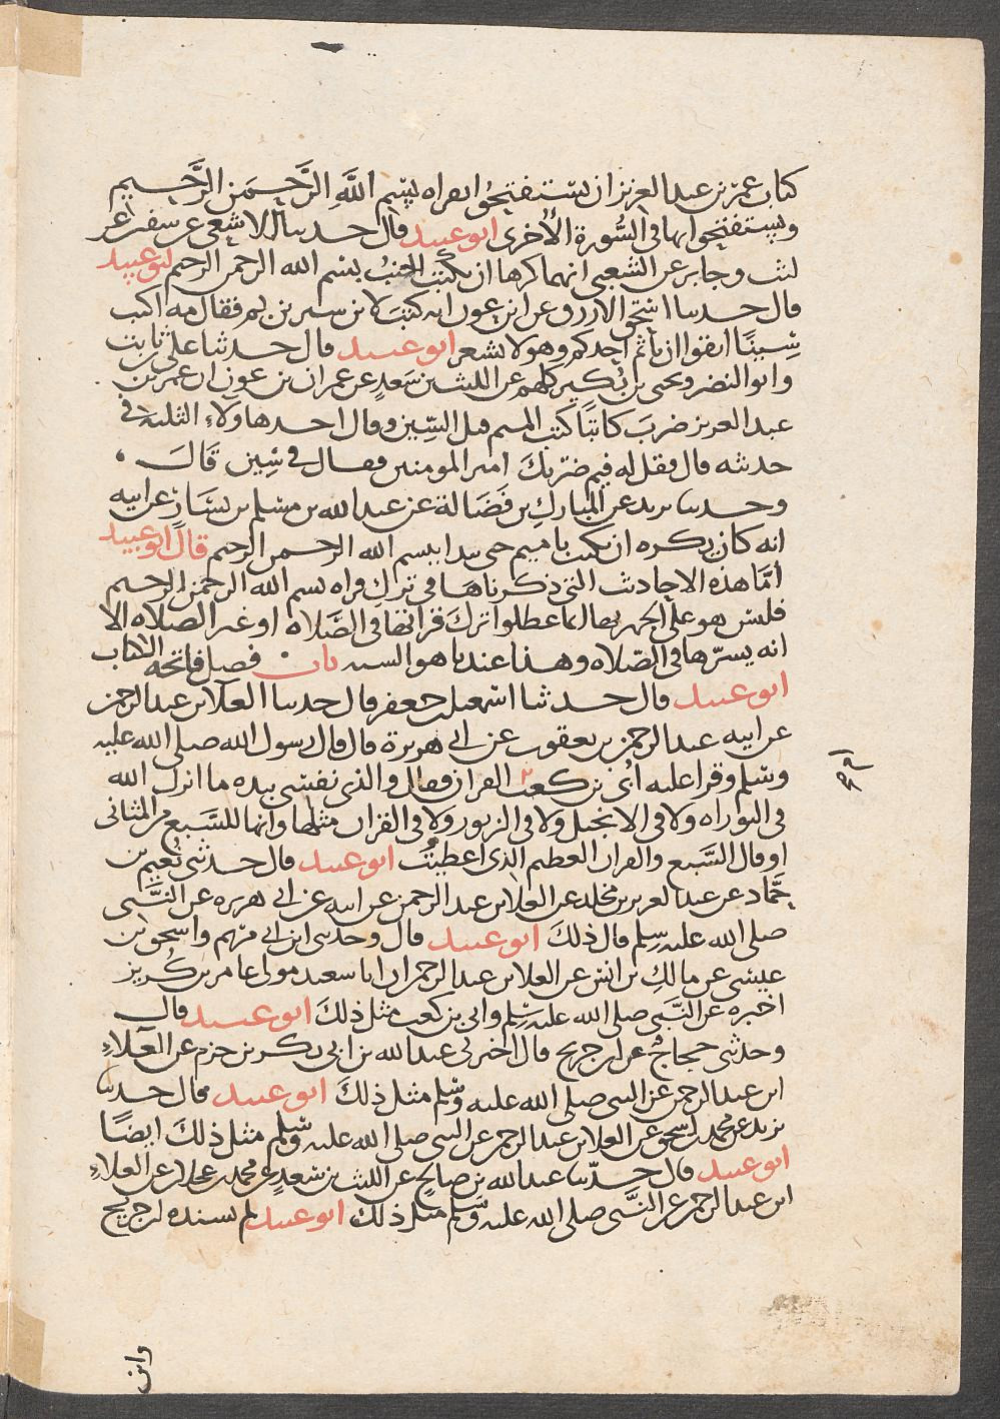 كتاب عمر بن عبد العزيز ان يستفتحوا بقراه بِسْمِ اللَّهِ الرَّحْمَنِ الرَّحِيمِ
ويستفتحوا بها في السُّورة الأخرى ابو عبيد قال حدثنا الاشجعي عن سفين عن
ليث وجابر عن الشعبي انهما كرها ان يكتب الجنبُ بسم الله الرحمن الرحيم ابو عبيد
قال حدثنا اسحق الازرق عن ابن عون انه كتبَ لابن سيرين بم فقال مه اكتب
سِينًا اتقوا ان ياثم احدكم وهو لا يشعر ابو عبيد قال حدثنا علي بن ثابت
وابو النضر ويحيى بن بُكير كلهم عن الليث بن سَعدٍ عن عمران بن عون ان عمر بن
عبد العزيز ضربَ كاتبًا كتب الميم قبل السِّين وقال احد هاولاءِ الثلثة في
حدثه قال فقيل له فيم ضربكَ امير المومنين فقال في سِين قَالَ
وحدثنا يزيد عن المبارك بن فَضَالة عن عبد الله بن مسلم بن يسَار عن ابيه
انه كان يكره ان يكتب باميم حتى يبدا بسم الله الرحمن الرحيم قال ابو عبيد
أمَّا هذه الاحاديث التي ذكرناها في ترك قراه بسم الله الرحمن الرحيم
فليس هو على الجهر بها انما عطلوا ترك قراتها في الصَّلاة او غير الصلاه الا
انه يسرّها في الصّلاه وهذا عندنا هو السنه باب فضل فاتحة الكتاب
ابو عبيد قال حدثنا اسمعيل بن جعفر قال حدثنا العلا بن عبد الرحمن
عن ابيه عبد الرحمن بن يعقوب عن ابي هريرة قال قال رسول الله صلى الله عليه
وسّلم وقرا عليه أبي بن كعب القران فقال والذي نفسي بيده ما انزل الله
في التوراه ولا في الانجيل ولا في الزبور ولا في القران مثلها وانها للسَّبع من المثاني
او قال السَّبع والقران العظيم الذي اعطيتُ ابو عبيد قال حدثني نُعيم بن
حمَّاد عن عبد العزيز بن محمد عن العلا بن عبد الرحمن عن ابيه عن ابي هريره عن النَّبي
صلى الله عليه وسلم قال ذلك ابو عبيد قال وحدثني ابن ابي مريم واسحق بن
عيسى عن مالكِ بن انس عن العلا بن عبد الرحمن ان ابا سعيد مولى عامر بن كُريز
اخبره عن النَّبي صلى الله عليه وسّلم وابي بن كعب مثل ذلك ابو عبيد قال
وحدثني حجاج عن ابن جريج قال اخبرني عبد الله بن ابي بكر بن حزم عن العَلاءِ
ابن عبد الرحمن عن النبي صلى الله عليه وسّلم مثل ذلك ابو عبيد قال حدثنا
يزيد عن محمد بن اسحق عن العلا بن عبد الرحمن عن النبي صلى الله عليه وسّلم مثل ذلك ايضًا
ابو عبيد قال حدّثنا عبد الله بن صالح عن الليث بن سَعدٍ عن محمد بن عجلان عن العلاءِ
ابن عبد الرحمن عن النَّبي صلى الله عليه وسلم مثل ذلك ابو عبيد لم يسنده ابن جريج
وابن